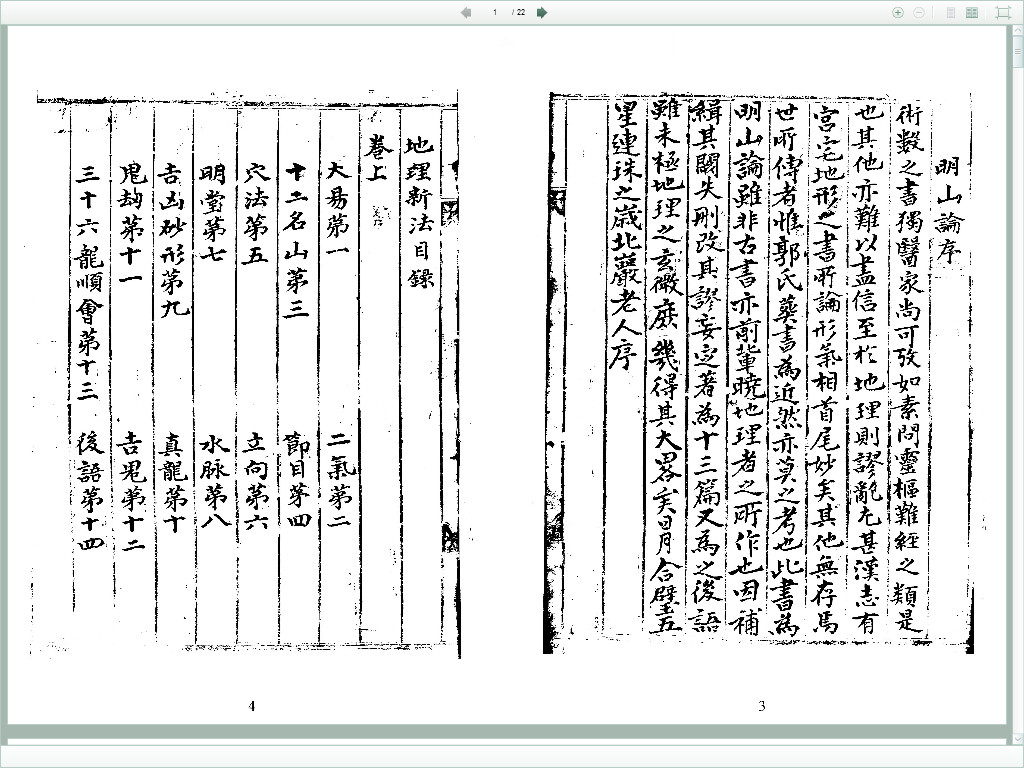 1 / 22
明山論序
術數之書獨醫家尚可攷如素問靈樞難經之類是
也其他亦難以盡信至於地理則謬亂尤甚漢志有
宮宅地形之書所論形氣相首尾妙矣其他無存焉
世所傳者惟郭氏葬書為近然亦莫之考也此書為
明山論雖非古書亦前輩曉地理者之所作也因補
緝其闕失刪改其謬妄定著為十三篇又為之後語
雖未極地理之玄微庶幾得其大畧矣日月合璧五
星連珠之歲北巖老人序
3
地理新法目錄
卷上
大易第一 二氣第二
十二名山第三 節目苐四
穴法第五 立向第六
明堂第七 水脉第八
吉凶砂形第九 真龍第十
鬼劫第十一 吉鬼第十二
三十六龍順會第十三 後語第十四
4